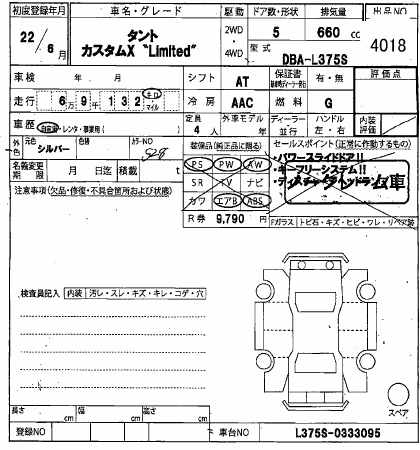 初度登録年月 車名・グレード 駆動 ドア数・形状 排気量 出品NO
22/6月 タント カスタムX "Limited" 2WD・4WD 5 660 cc 4018
型式 DBA-L375S
車検 年 月 シフト AT 保証書 有・無 評価点
走行 6万9千132 キロ マイル 冷房 AAC 燃料 G
車歴 自家用・レンタ・事業用( ) 定員 4人 外車モデル 年 ディーラー 並行 ハンドル 左・右 内装評価
外色 元色 シルバー 色替 カラーNO S28 装備品(純正品に限る) セールスポイント(正常に作動するもの)
名義変更期限 月 日迄 積載 t PS PW AW ・パワースライドドア!!
注意事項(欠品・修復・不具合箇所および状態) SR TV ナビ ・キーフリーシステム!!
カワ エアB ABS
R券 9,790 円 Fガラス トビ石・キズ・ヒビ・ワレ・リペア跡
検査員記入 内装 汚レ・スレ・キズ・キレ・コゲ・穴
スペア
長さ cm 幅 cm 高さ cm
登録NO 車台NO L375S-0333095